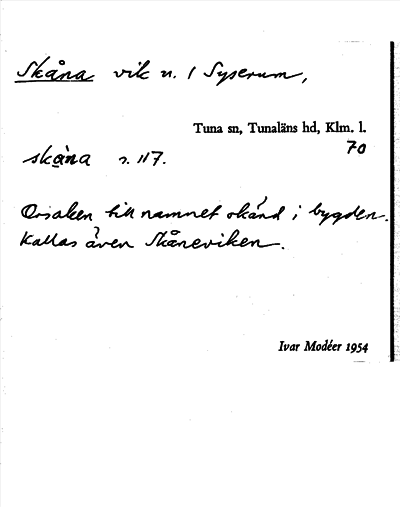 Skåna vik n. / Syserum,
Tuna sn, Tunaläns hd, Klm. l.
70
skåna s. 117.
Orsaken till namnet okänd i bygden.
Kallas även Skåneviken.
Ivar Modéer 1954